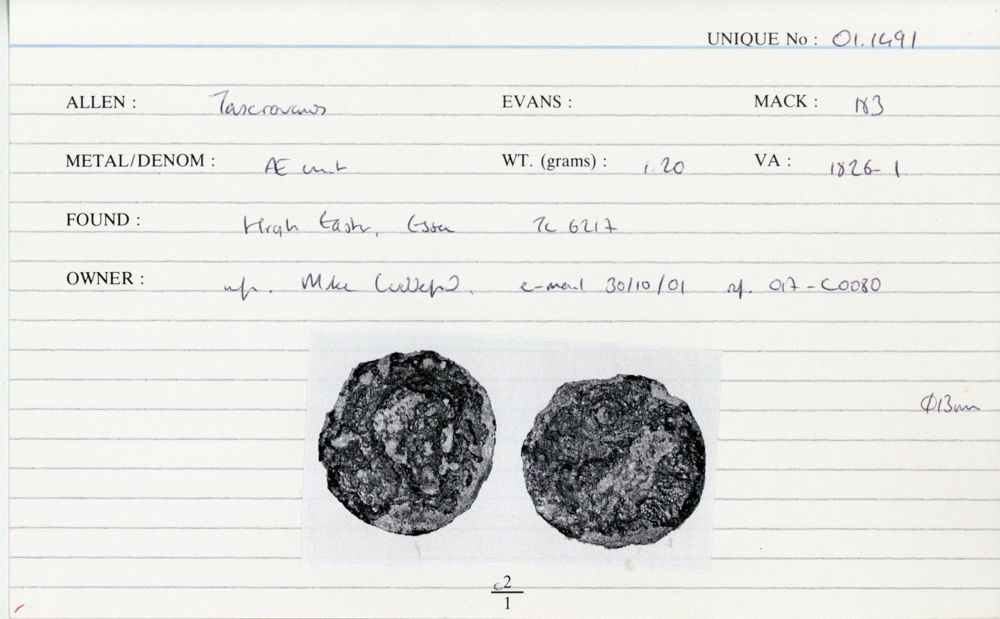 UNIQUE No : 01.1491
ALLEN : Tasciovanus EVANS : MACK : 183
METAL/DENOM : Æ unit WT. (grams) : 1.20 VA : 1826-1
FOUND : High Easter, Essex TL 6217
OWNER : Mike e-mail 30/10/01 ref. 017-C0080
Ø13mm
c2
1